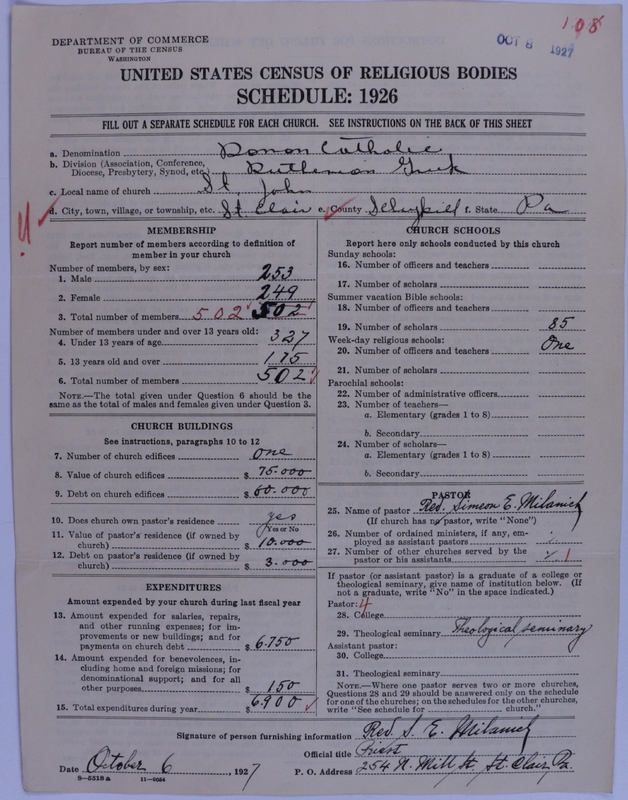 108
OCT 8 1927
DEPARTMENT OF COMMERCE
BUREAU OF THE CENSUS
WASHINGTON
UNITED STATES CENSUS OF RELIGIOUS BODIES
SCHEDULE: 1926
FILL OUT A SEPARATE SCHEDULE FOR EACH CHURCH. SEE INSTRUCTIONS ON THE BACK OF THIS SHEET
a. Denomination Roman Catholic
b. Division (Association, Conference, Diocese, Presbytery, Synod, etc.) Ruthenian Greek
c. Local name of church St. John
d. City, town, village, or township, etc. St Clair e. County Schuylkill f. State Pa
MEMBERSHIP
Report number of members according to definition of member in your church
Number of members, by sex:
1. Male 253
2. Female 249
3. Total number of members 502 502
Number of members under and over 13 years old:
4. Under 13 years of age 327
5. 13 years old and over 175
6. Total number of members 502
NOTE.—The total given under Question 6 should be the same as the total of males and females given under Question 3.
CHURCH BUILDINGS
See instructions, paragraphs 10 to 12
7. Number of church edifices One
8. Value of church edifices $ 75.000
9. Debt on church edifices $ 60.000
10. Does church own pastor's residence yes
Yes or No
11. Value of pastor's residence (if owned by church) $ 10.000
12. Debt on pastor's residence (if owned by church) $ 3.000
EXPENDITURES
Amount expended by your church during last fiscal year
13. Amount expended for salaries, repairs, and other running expenses; for improvements or new buildings; and for payments on church debt $ 6.750
14. Amount expended for benevolences, including home and foreign missions; for denominational support; and for all other purposes $ 150
15. Total expenditures during year $ 6.900
CHURCH SCHOOLS
Report here only schools conducted by this church
Sunday schools:
16. Number of officers and teachers
17. Number of scholars
Summer vacation Bible schools:
18. Number of officers and teachers
19. Number of scholars 85
Week-day religious schools:
20. Number of officers and teachers One
21. Number of scholars
Parochial schools:
22. Number of administrative officers
23. Number of teachers—
a. Elementary (grades 1 to 8)
b. Secondary
24. Number of scholars—
a. Elementary (grades 1 to 8)
b. Secondary
PASTOR
25. Name of pastor Rev. Simeon E. Milanick
(If church has no pastor, write "None")
26. Number of ordained ministers, if any, employed as assistant pastors
27. Number of other churches served by the pastor or his assistants 1
If pastor (or assistant pastor) is a graduate of a college or theological seminary, give name of institution below. (If not a graduate, write "No" in the space indicated.)
Pastor: 4
28. College
29. Theological seminary Theological seminary
Assistant pastor:
30. College
31. Theological seminary
NOTE.—Where one pastor serves two or more churches, Questions 28 and 29 should be answered only on the schedule for one of the churches; on the schedules for the other churches, write "See schedule for church."
Signature of person furnishing information Rev. S. E. Milanick
Official title Priest
Date October 6, 1927 P. O. Address 254 N. Mill St. St. Clair, Pa.
8-5518 a 11-9034